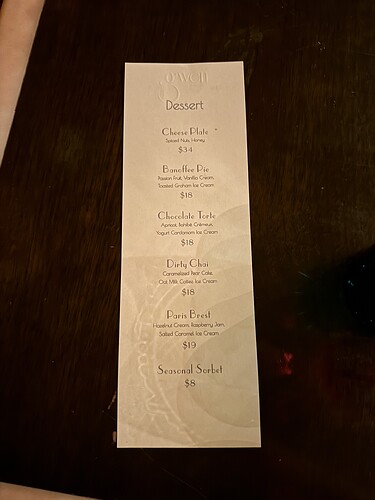 Dessert
Cheese Plate
Spiced Nuts, Honey
$34
Banoffee Pie
Passion Fruit, Vanilla Cream,
Toasted Graham Ice Cream
$18
Chocolate Torte
Apricot, Sahlré Crémeux,
Yogurt Cardamom Ice Cream
$18
Dirty Chai
Caramelized Pear Cake,
Oat Milk Coffee Ice Cream
$18
Paris Brest
Hazelnut Cream, Raspberry Jam,
Salted Caramel Ice Cream
$19
Seasonal Sorbet
$8